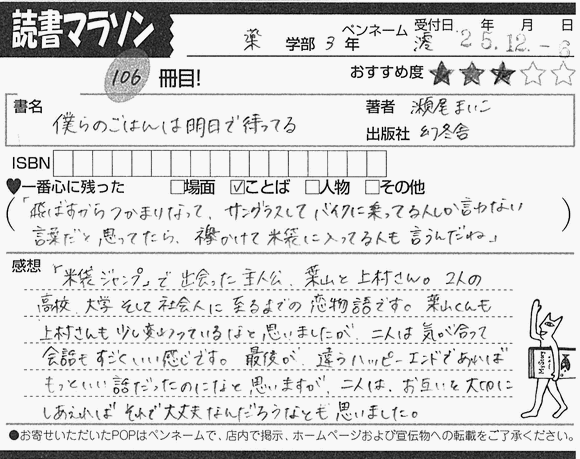 読書マラソン
薬 学部 3 年 ペンネーム 澪 受付日 25年12月-6日
106 冊目! おすすめ度 ★★★☆☆
書名 僕らのごはんは明日で待ってる
著者 瀬尾まいこ
出版社 幻冬舎
ISBN
♥一番心に残った □場面 ☑ことば □人物 □その他
(「飛ばすからつかまりなって、サングラスしてバイクに乗ってる人しか言わない
言葉だと思ってたら、襷かけて米袋に入ってる人も言うんだね」)
感想 「米袋ジャンプ」で出会った主人公、葉山と上村さん。2人の
高校、大学そして社会人に至るまでの恋物語です。葉山くんも
上村さんも少し変わっているなと思いましたが、二人は気が合って
会話もすごくいい感じです。最後が、違うハッピーエンドであれば
もっといい話だったのになと思いますが、二人は、お互いを大切に
しあえれば それで大丈夫なんだろうなとも思いました。
Mystery
●お寄せいただいたPOPはペンネームで、店内で掲示、ホームページおよび宣伝物への転載をご了承ください。